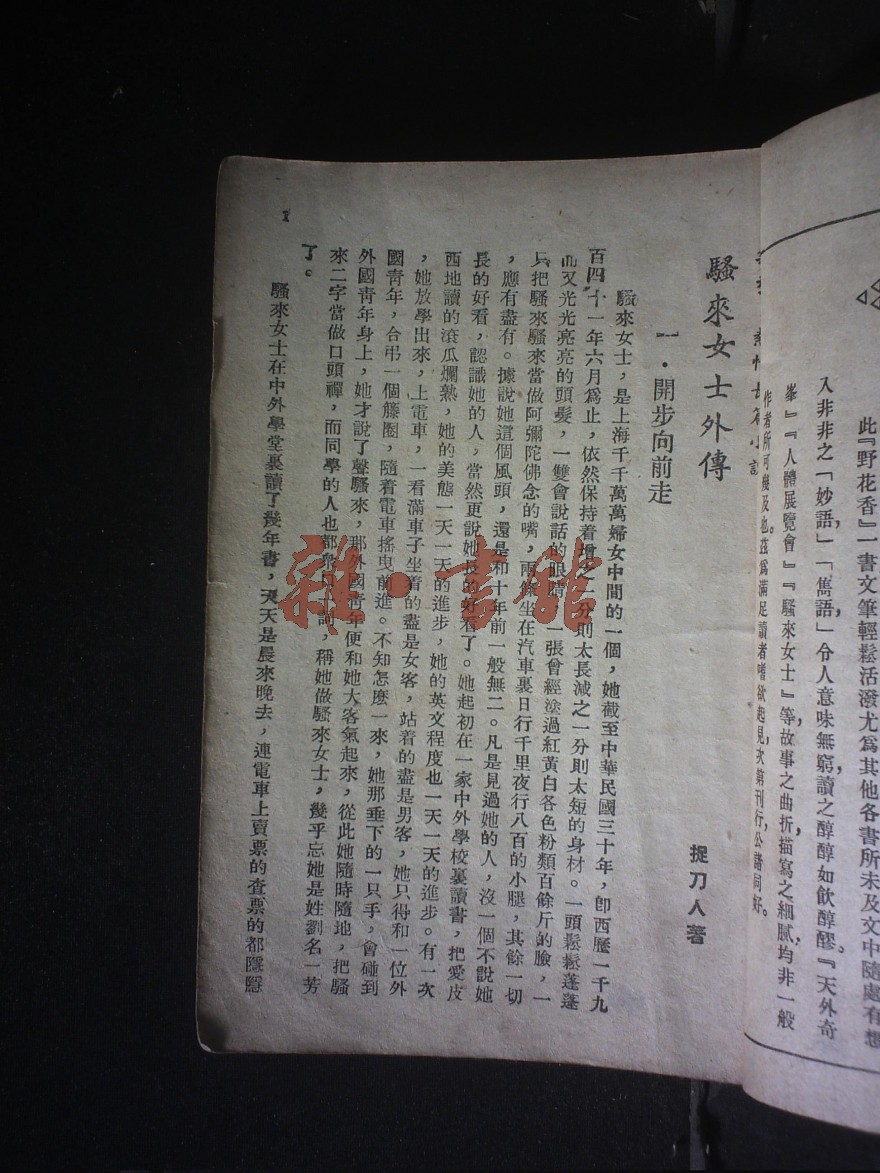 此『野花香』一書文筆輕鬆活潑尤爲其他各書所未及文中隨處有想
入非非之「妙語」「雋語」令人意味無窮讀之醇醇如飮醇醪。『天外奇
峯』『人體展覽會』『騷來女士』等故事之曲折描寫之細膩均非一般
作者所可幾及也。茲爲滿足讀者嗜欲起見，次第刊行，公諸同好。
長篇小說
騷來女士外傳
捉刀人著
一・開步向前走
騷來女士，是上海千千萬萬婦女中間的一個，她截至中華民國三十年，卽西歷一千九
百四十一年六月爲止，依然保持着增之一分則太長減之一分則太短的身材。一頭鬆鬆蓬蓬
而又光光亮亮的頭髮，一雙會說話的眼睛，一張曾經塗過紅黃白各色粉類百餘斤的臉，一
只把騷來騷來當做阿彌陀佛念的嘴，兩條坐在汽車裏日行千里夜行八百的小腿，其餘一切
，應有盡有。據說她這個風頭，還是和十年前一般無二。凡是見過她的人，沒一個不說她
長的好看，認識她的人，當然更說她長的好看了。她起初在一家中外學校裏讀書，把愛皮
西地讀的滾瓜爛熟，她的美態一天一天的進步，她的英文程度也一天一天的進步。有一次
，她放學出來，上電車，一看滿車子坐着的盡是女客，站着的盡是男客，她只得和一位外
國靑年，合弔一個籐圈，隨着電車搖曳前進。不知怎麽一來，她那垂下的一只手，會碰到
外國靑年身上，她才說了聲騷來，那外國靑年便和她大客氣起來，從此她隨時隨地，把騷
來二字當做口頭禪，而同學的人也都衆口一詞，稱她做騷來女士，幾乎忘她是姓劉名一芳
了。
騷來女士在中外學堂裏讀了幾年書，天天是晨來晚去，連電車上賣票的查票的都隱隱
1
雜・書館